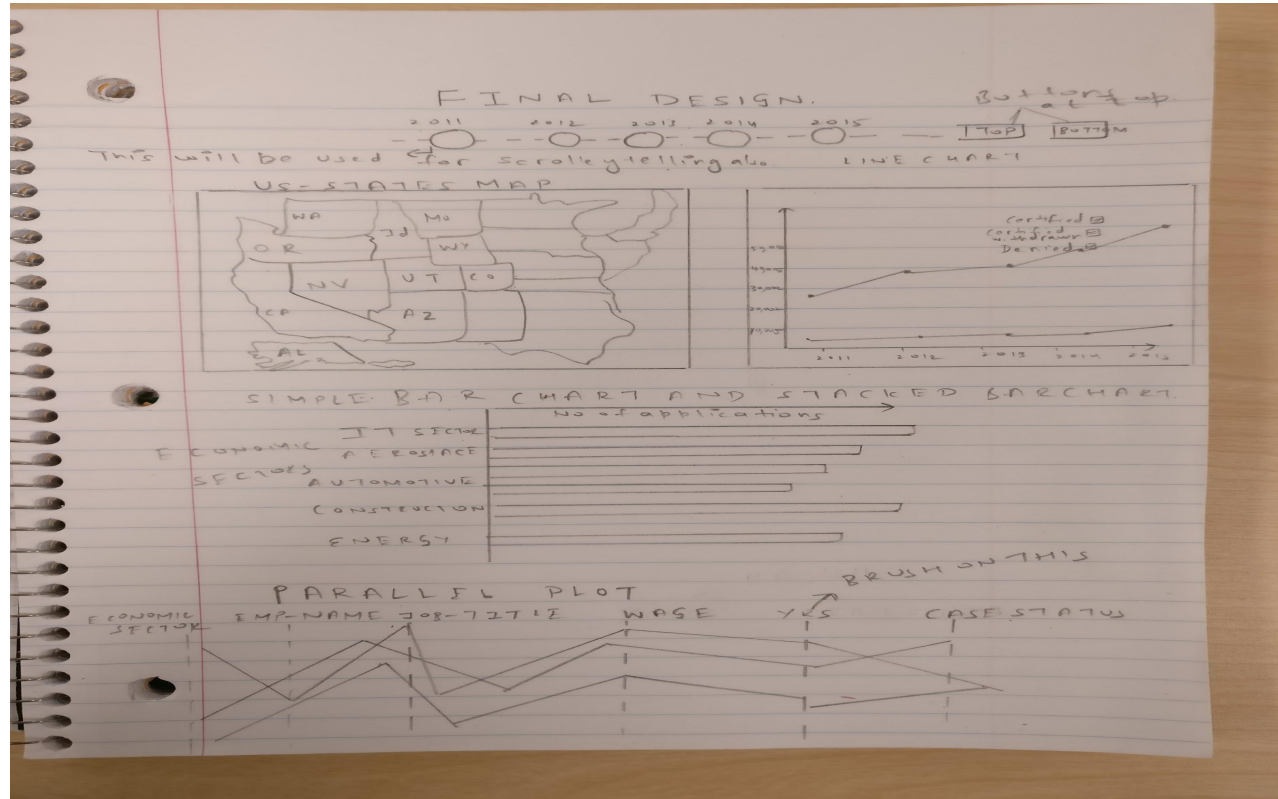 FINAL DESIGN.
Buttons at top
2011 2012 2013 2014 2015
TOP BOTTOM
This will be used for scrolleytelling also
LINE CHART
US-STATES MAP
WA
Mo
Id
OR
WY
NV
UT
CO
CA
AZ
AL
Certified
Certified withdrawn
Denied
40,000
30,000
20,000
10,000
2011 2012 2013 2014 2015
SIMPLE BAR CHART AND STACKED BARCHART.
No of applications
ECONOMIC SECTORS
IT SECTOR
AEROSPACE
AUTOMOTIVE
CONSTRUCTION
ENERGY
BRUSH ON THIS
PARALLEL PLOT
ECONOMIC SECTOR
EMP-NAME
JOB-TITLE
WAGE
CASE STATUS